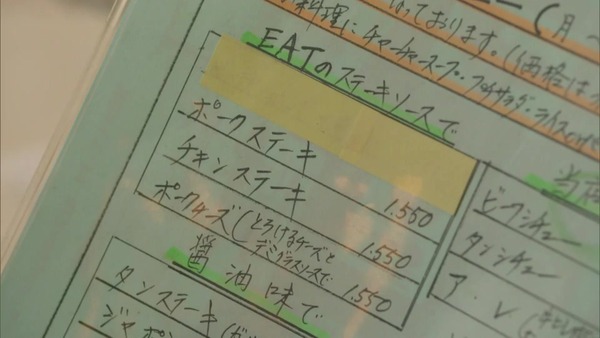 (月
しております。(価格は
料理に チャーチャースープ・
EATのステーキソースで
ポークステーキ 1.550
チキンステーキ 1.550
ポークチーズ(とろけるチーズとデミグラスソースで 1.550
醤油味で
タンステーキ(
ジャポン
当店
ビーフシチュー
タンシチュー
ア・レ(